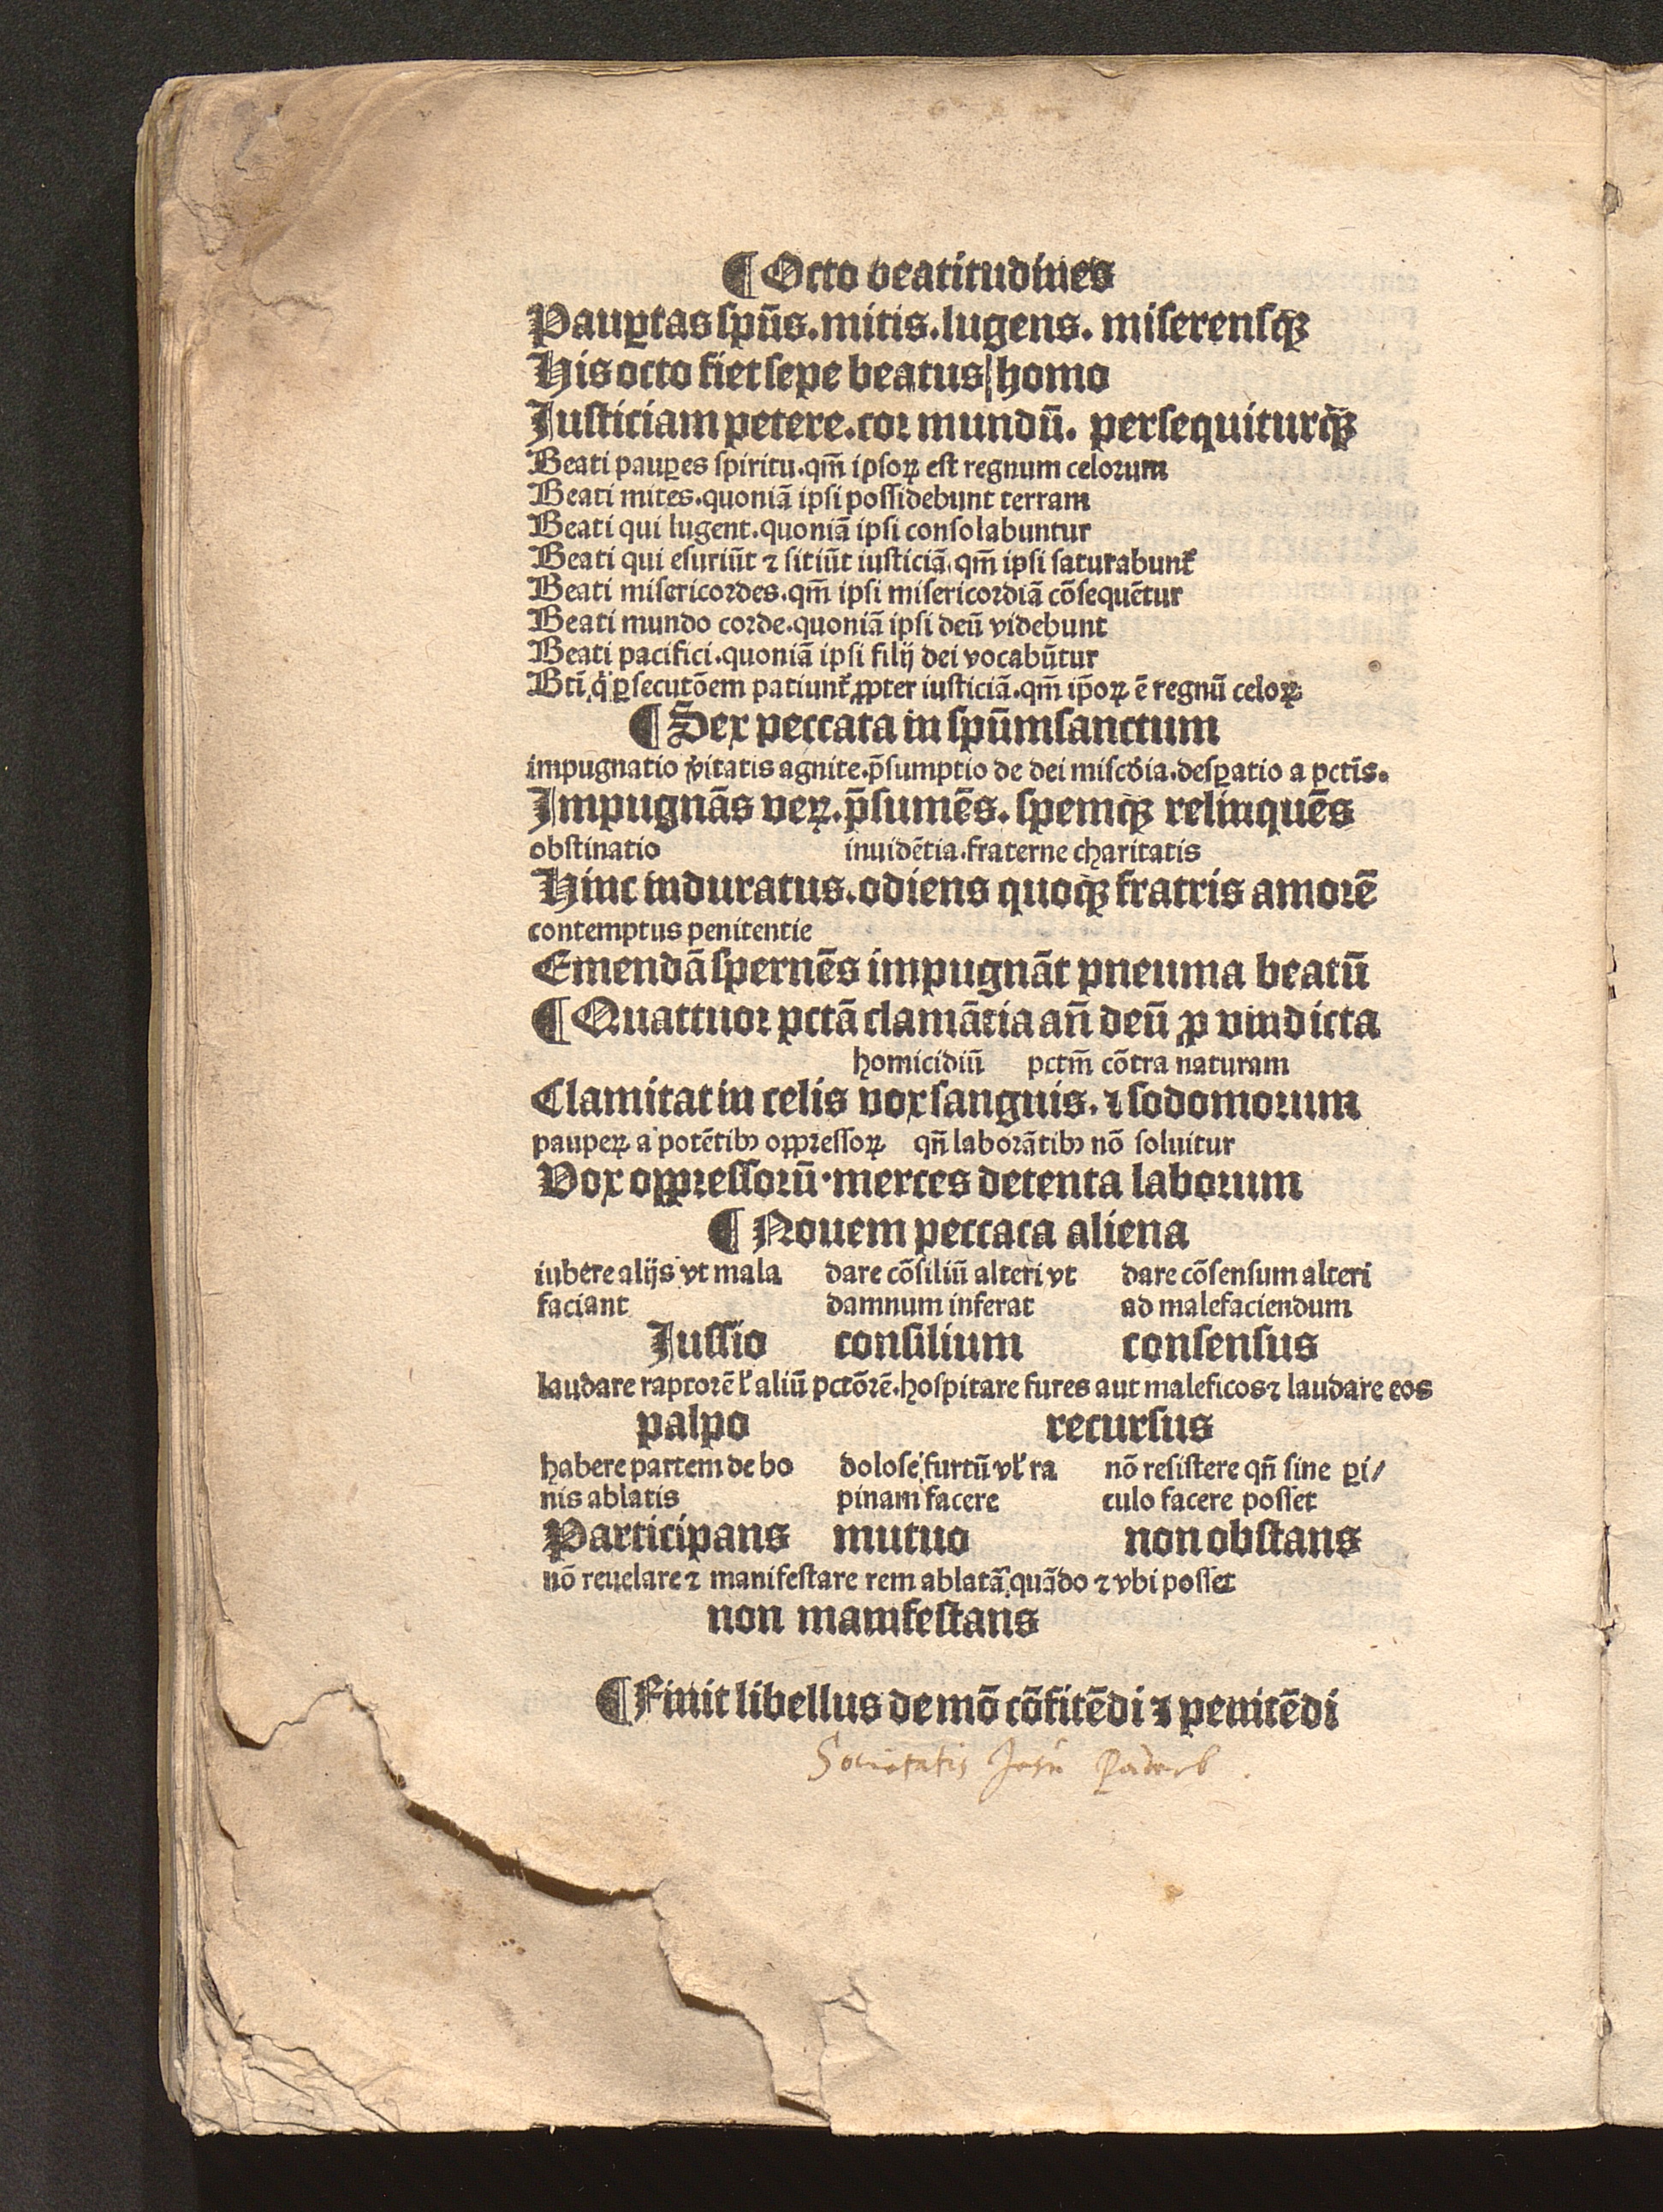 ¶ Octo beatitudines
Pauꝑtas spūs. mitis. lugens. miserensqꝫ
His octo fiet sepe beatus/homo
Iusticiam petere. cor mundū. persequiturqꝫ
Beati pauꝑes spiritu. qm̄ ipsoꝝ est regnum celorum
Beati mites. quoniā ipsi possidebunt terram
Beati qui lugent. quoniā ipsi consolabuntur
Beati qui esuriūt ⁊ sitiūt iusticiā. qm̄ ipsi saturabunt᷑
Beati misericordes. qm̄ ipsi misericordiā cōsequētur
Beati mundo corde. quoniā ipsi deū videbunt
Beati pacifici. quoniā ipsi filij dei vocabūtur
Bti̅ qͥ ꝑsecutōem patiunt᷑ ꝓpter iusticiā. qm̄ ip̄oꝝ ē regnū celoꝝ
¶ Sex peccata in spūmsanctum
impugnatio v̓itatis agnite. p̄sumptio de dei misc̓dia. desꝑatio a pctīs.
Impugnās veꝝ. p̄sumēs. spemqꝫ relinquēs
obstinatio inuidētia. fraterne charitatis
Hinc induratus. odiens quoqꝫ fratris amorē
contemptus penitentie
Emendā spernēs impugnāt pneuma beatū
¶ Quattuor pctā clamātia an̄ deū ꝓ vindicta
homicidiū pctm̄ cōtra naturam
Clamitat in celis vox sanguis. ⁊ sodomorum
pauperꝝ a potētibꝰ oppressoꝝ qn̄ laborātibꝰ nō soluitur
Vox oppressorū. merces detenta laborum
¶ Nouem peccata aliena
iubere alijs vt mala dare cōsiliū alteri vt dare cōsensum alteri
faciant damnum inferat ad malefaciendum
Iussio consilium consensus
laudare raptorē ł aliū pctōrē. hospitare fures aut maleficos ⁊ laudare eos
palpo recursus
habere partem de bo dolose furtū vł ra nō resistere qn̄ sine ꝑi/
nis ablatis pinam facere culo facere posset
Participans mutuo non obstans
nō reuelare ⁊ manifestare rem ablatā quādo ⁊ vbi posset
non manifestans
¶ Finit libellus de mō cōfitēdi ⁊ penitēdi
Societatis Jesu Paderb.